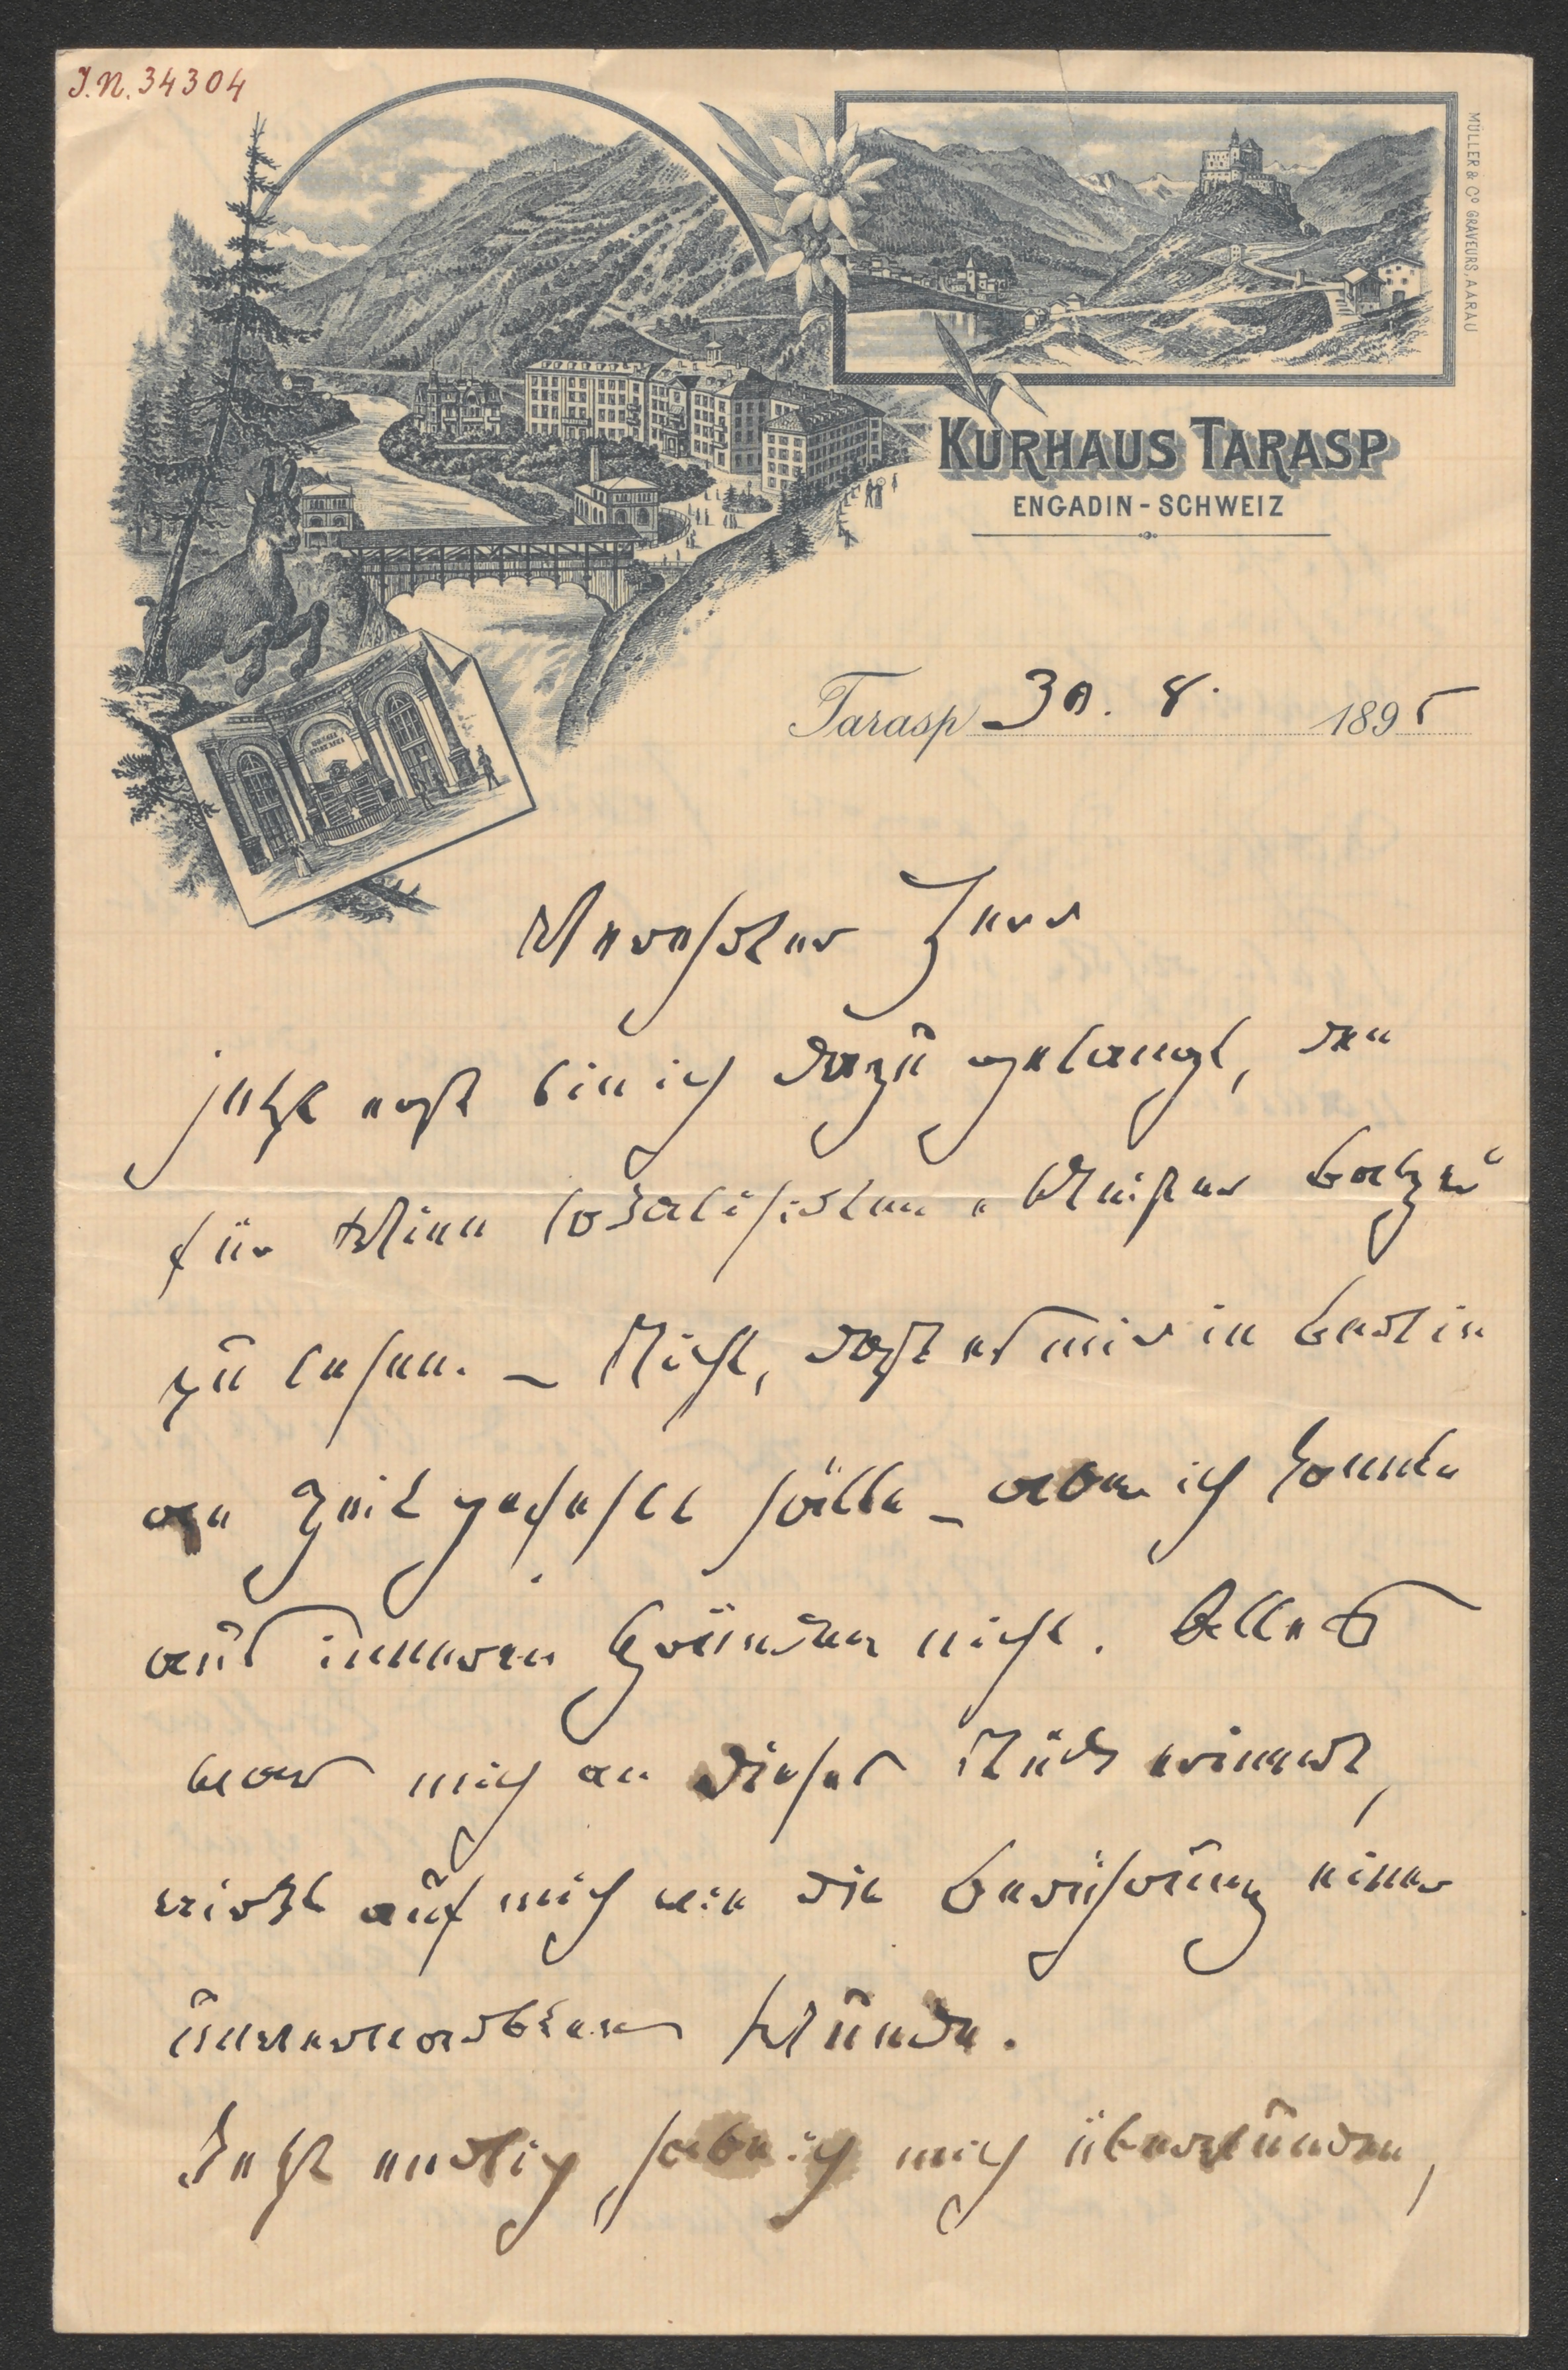 J.N. 34304
MÜLLER & Co GRAVEURS, AARAU
KURHAUS TARASP
ENGADIN - SCHWEIZ
Tarasp 30. 8. 1895
Verehrter Herr
jetzt erst bin ich dazu gelangt, den
für Wien lokalisirten „Meister
zu lesen. – Nicht, daß es mir in Berlin
an Zeit gefehlt hätte – aber ich konnte
aus inneren Gründen nicht. Alles
was mich an dieses Stück erinnert,
wirkt auf mich wie die Berührung einer
unvernarbten Wunde.
Jetzt endlich habe ich mich überwunden,